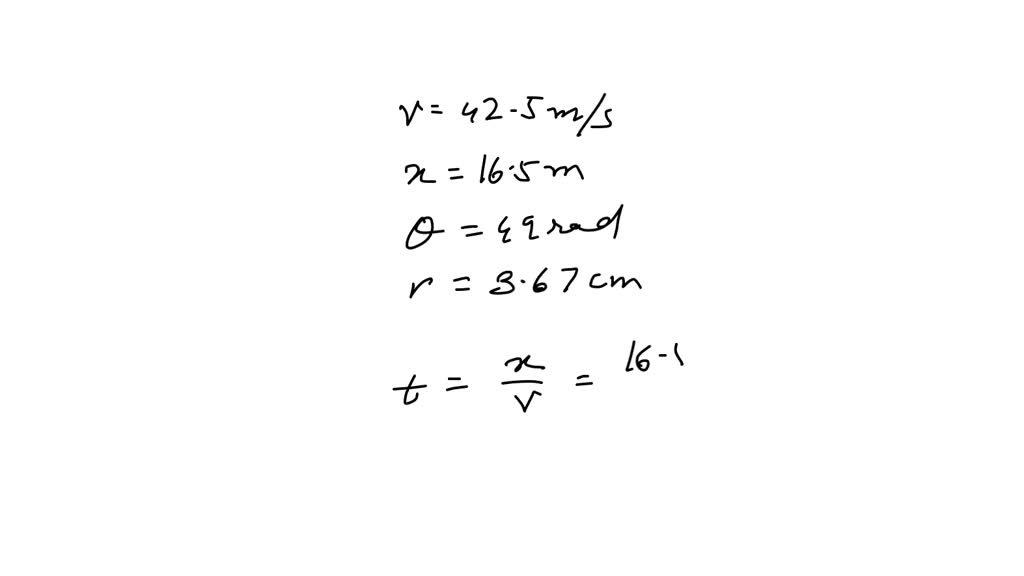 v = 42.5 m/s
x = 16.5 m
θ = 49 rad
r = 3.67 cm
t = x/v = 16.